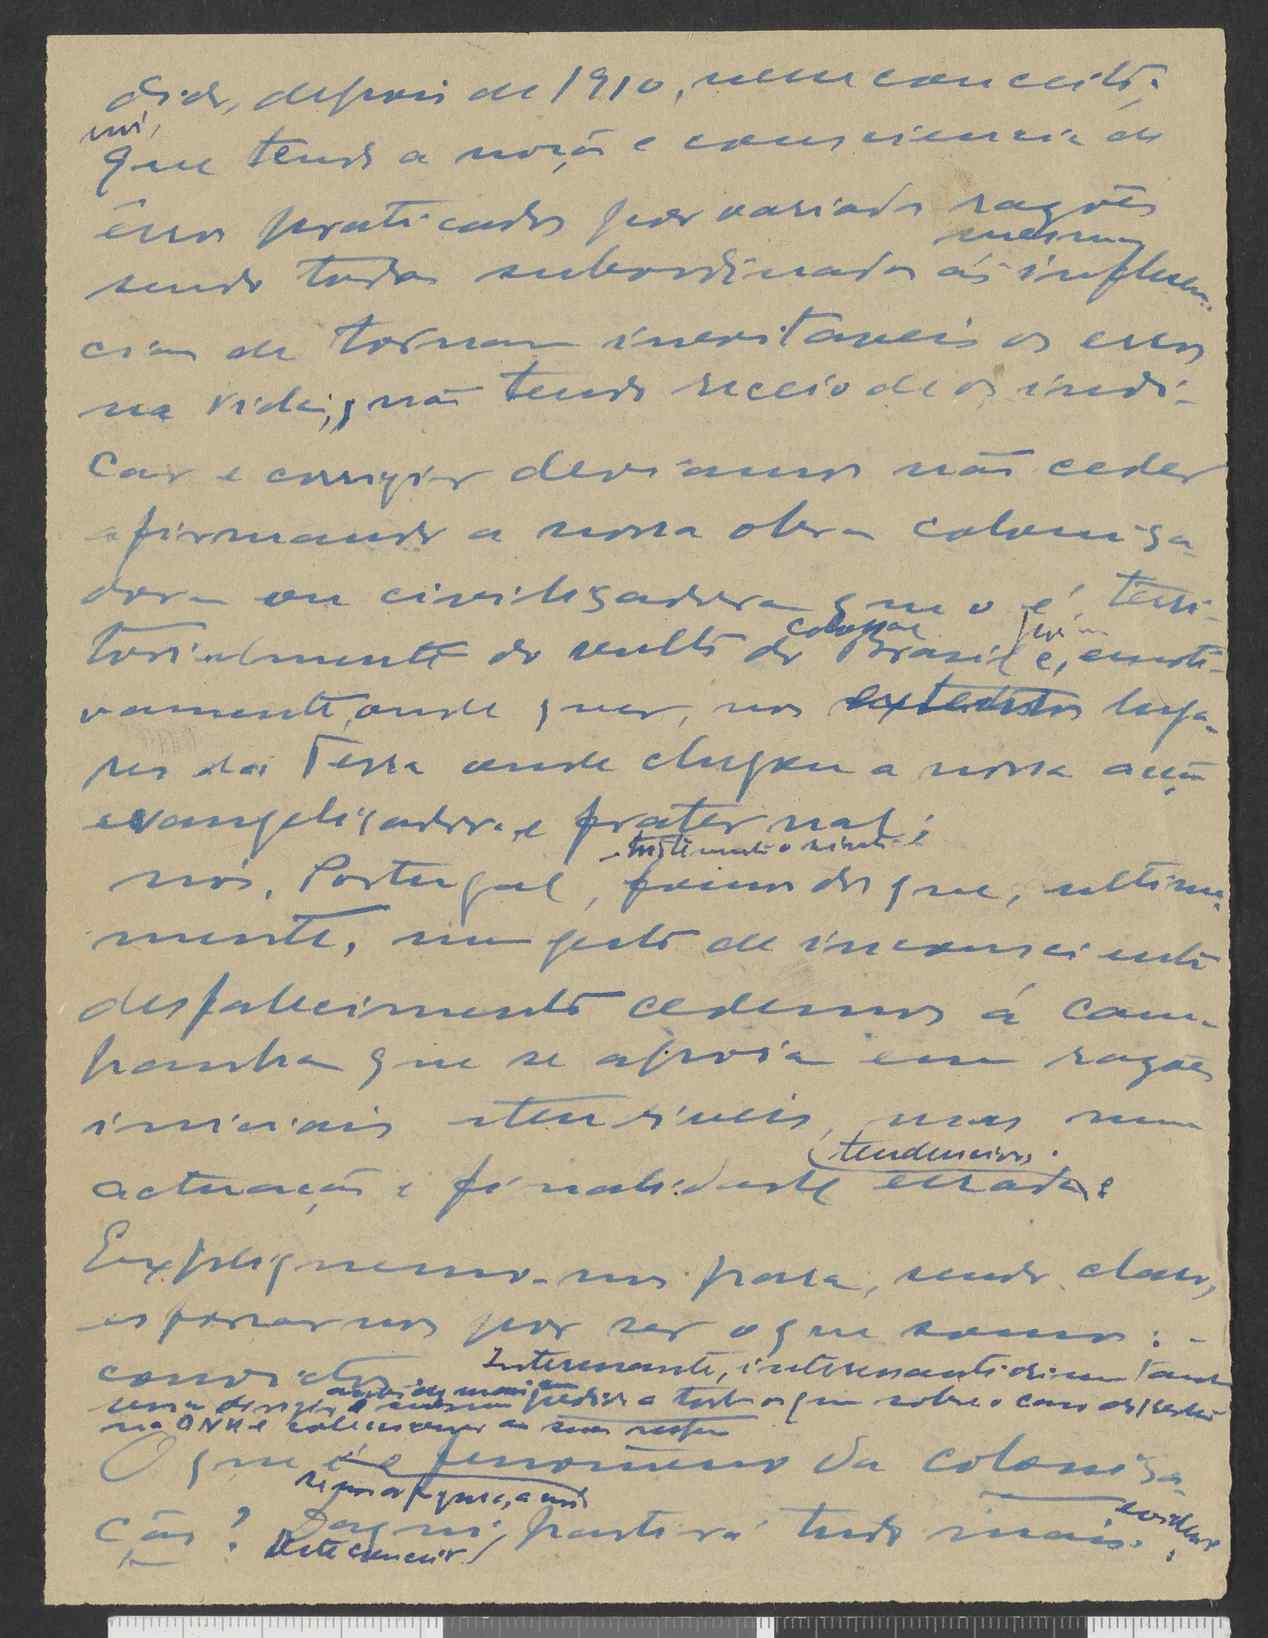 dido, depois de 1910, nem conceito;
que tendo a noção e consciencia de
êrros praticados por variadas razões
mesmo
sendo todos subordinados ás influen-
cias de tornam inevitaveis os erros
na vida; não tendo receio de os indi-
car e corrigir deviamos não ceder
afirmando a nossa obra coloniza-
dora ou civilizadora que o é, terri-
colossal
torialmente do vulto do Brasil e, emoti-
vamente, onde quer, nos luga-
res da Terra onde chegou a nossa acção
evangelizadora e fraternal;
nós, Portugal, fomos dos que, ultima-
mente, num gesto de inconsciente
desfalecimento cedemos á cam-
panha que se apoia em razões
iniciais ostensiveis, mas numa
tendenciosa
actuação e finalidade errada:
Expliquemo-nos para, sendo claros,
esforçarmos por ser o que somos: -
convictos
Interessante, interessantissimo
pedir a todos os que sobre o caso
na ONU e
O que é o fenomeno da coloniza-
ção? Daqui, partirá tudo mais.